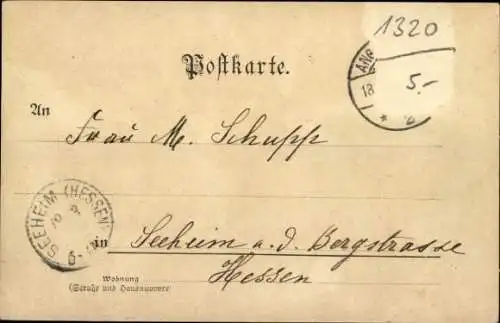 1320
Postkarte.
ANS
18
5.-
An
Frau M. Schupp
SEEHEIM (HESSEN)
in Seeheim a. d. Bergstrasse
Hessen
Wohnung
(Straße und Hausnummer)